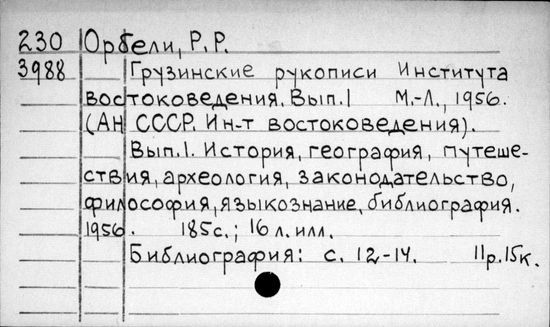 230 Орбели, Р.Р.
3988 Грузинские рукописи Института
востоковедения. Вып.1 М.-Л., 1956.
(АН СССР. Ин-т востоковедения).
Вып.1. История, география, путеше-
ствия, археология, законодательство,
философия, языкознание, библиография.
1956. 185с.; 16 л. илл.
Библиография: с. 12-14. 11р.15к.